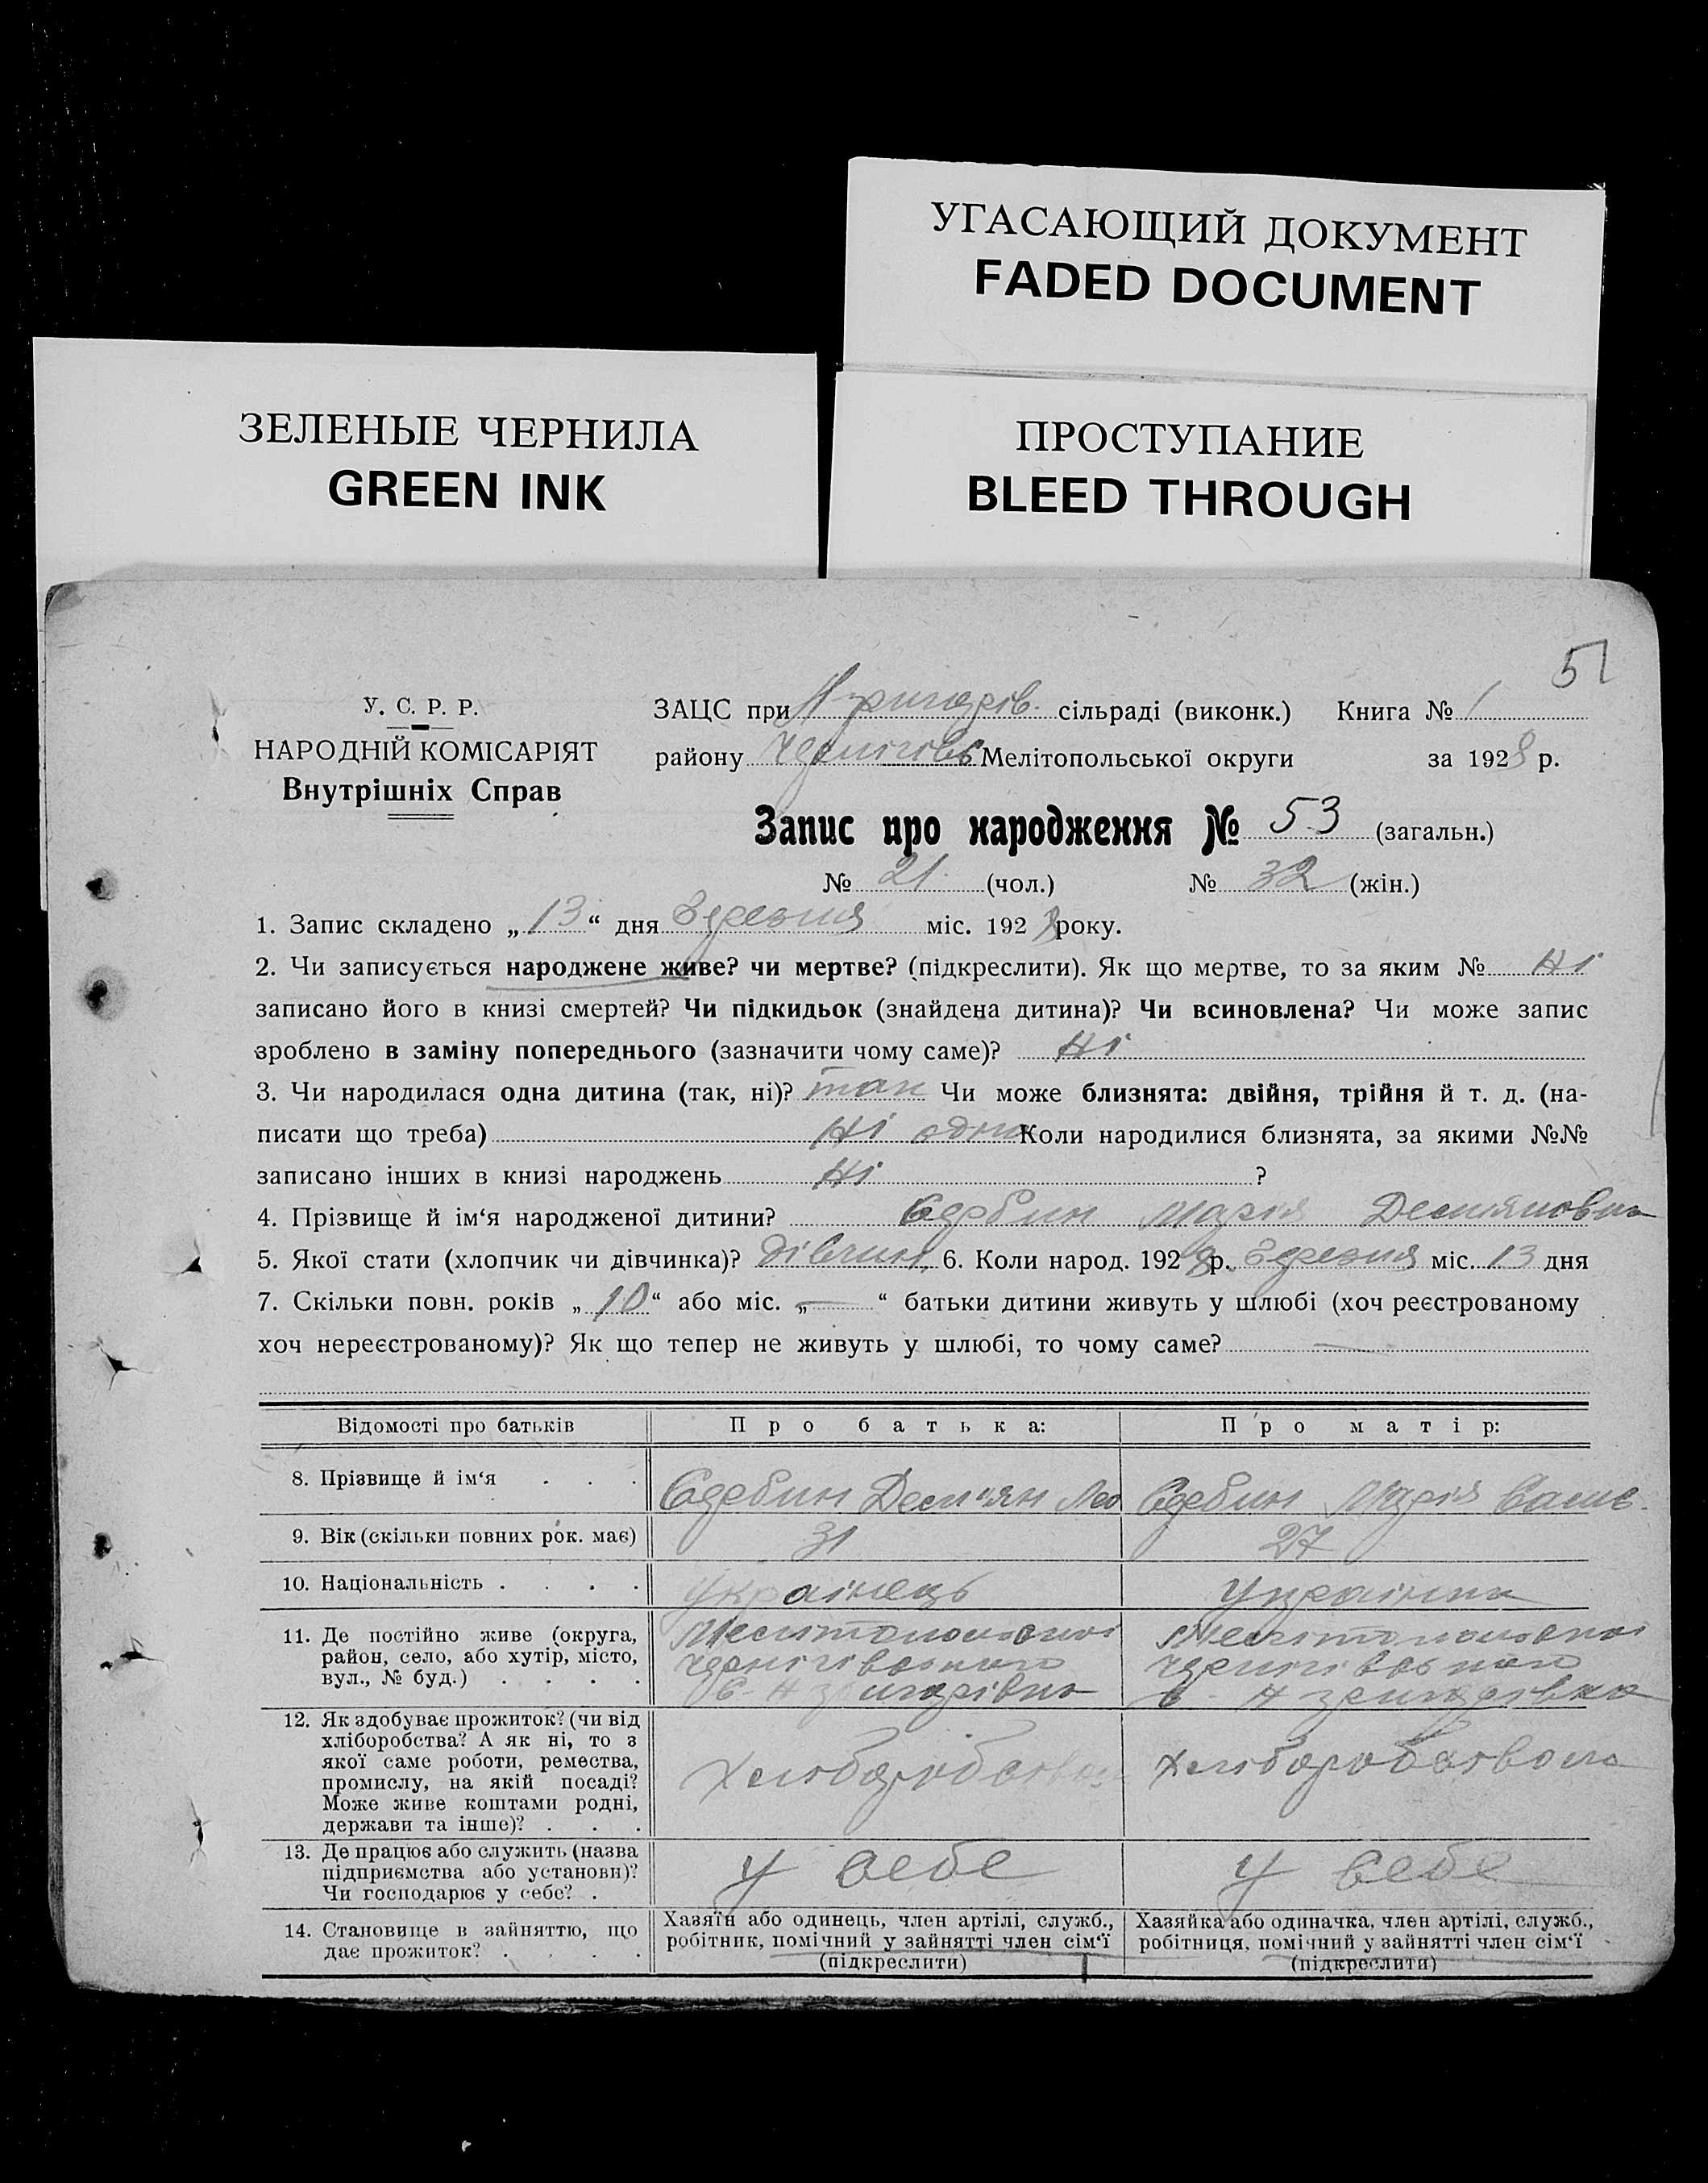 УГАСАЮЩИЙ ДОКУМЕНТ
FADED DOCUMENT
ЗЕЛЕНЫЕ ЧЕРНИЛА
GREEN INK
ПРОСТУПАНИЕ
BLEED THROUGH
51
У. С. Р. Р.
НАРОДНІЙ КОМІСАРІЯТ
Внутрішніх Справ
ЗАЦС при Н григорів. сільраді (виконк.) Книга № 1
району Чернігівс Мелітопольської округи за 1928 р.
Запис про народження № 53 (загальн.)
№ 21 (чол.) № 32 (жін.)
1. Запис складено „13“ дня Березня міс. 1928 року.
2. Чи записується народжене живе? чи мертве? (підкреслити). Як що мертве, то за яким № Ні
записано його в книзі смертей? Чи підкидьок (знайдена дитина)? Чи всиновлена? Чи може запис
зроблено в заміну попереднього (зазначити чому саме)? Ні
3. Чи народилася одна дитина (так, ні)? так Чи може близнята: двійня, трійня й т. д. (на-
писати що треба) Ні одна Коли народилися близнята, за якими №№
записано інших в книзі народжень Ні ?
4. Прізвище й ім‘я народженої дитини? Сербин Марія Демяновна
5. Якої стати (хлопчик чи дівчинка)? дівчин. 6. Коли народ. 1928 р. Березня міс. 13 дня
7. Скільки повн. років „10“ або міс. „—“ батьки дитини живуть у шлюбі (хоч реєстрованому
хоч нереєстрованому)? Як що тепер не живуть у шлюбі, то чому саме? —
Відомості про батьків Про батька: Про матір:
8. Прізвище й ім‘я . . . Сербин Дем'ян Лео Сербин Марія
9. Вік (скільки повних рок. має) 31 27
10. Національність . . . . українець Українка
11. Де постійно живе (округа,
район, село, або хутір, місто,
вул., № буд.) . . . .
Мелітопольської
Чернігівського
с. Н григорівка
Мелітопольської
Чернігівського
с. Н григорівка
12. Як здобуває прожиток? (чи від
хліборобства? А як ні, то з
якої саме роботи, ремества,
промислу, на якій посаді?
Може живе коштами родні,
держави та інше)? . . .
Хліборобством
хліборобством
13. Де працює або служить (назва
підприємства або установи)?
Чи господарює у себе? .
у себе
у себе
14. Становище в зайняттю, що
дає прожиток? . . . .
Хазяїн або одинець, член артілі, служб.,
робітник, помічний у зайнятті член сім‘ї
(підкреслити)
Хазяйка або одиначка, член артілі, служб.,
робітниця, помічний у зайнятті член сім‘ї
(підкреслити)